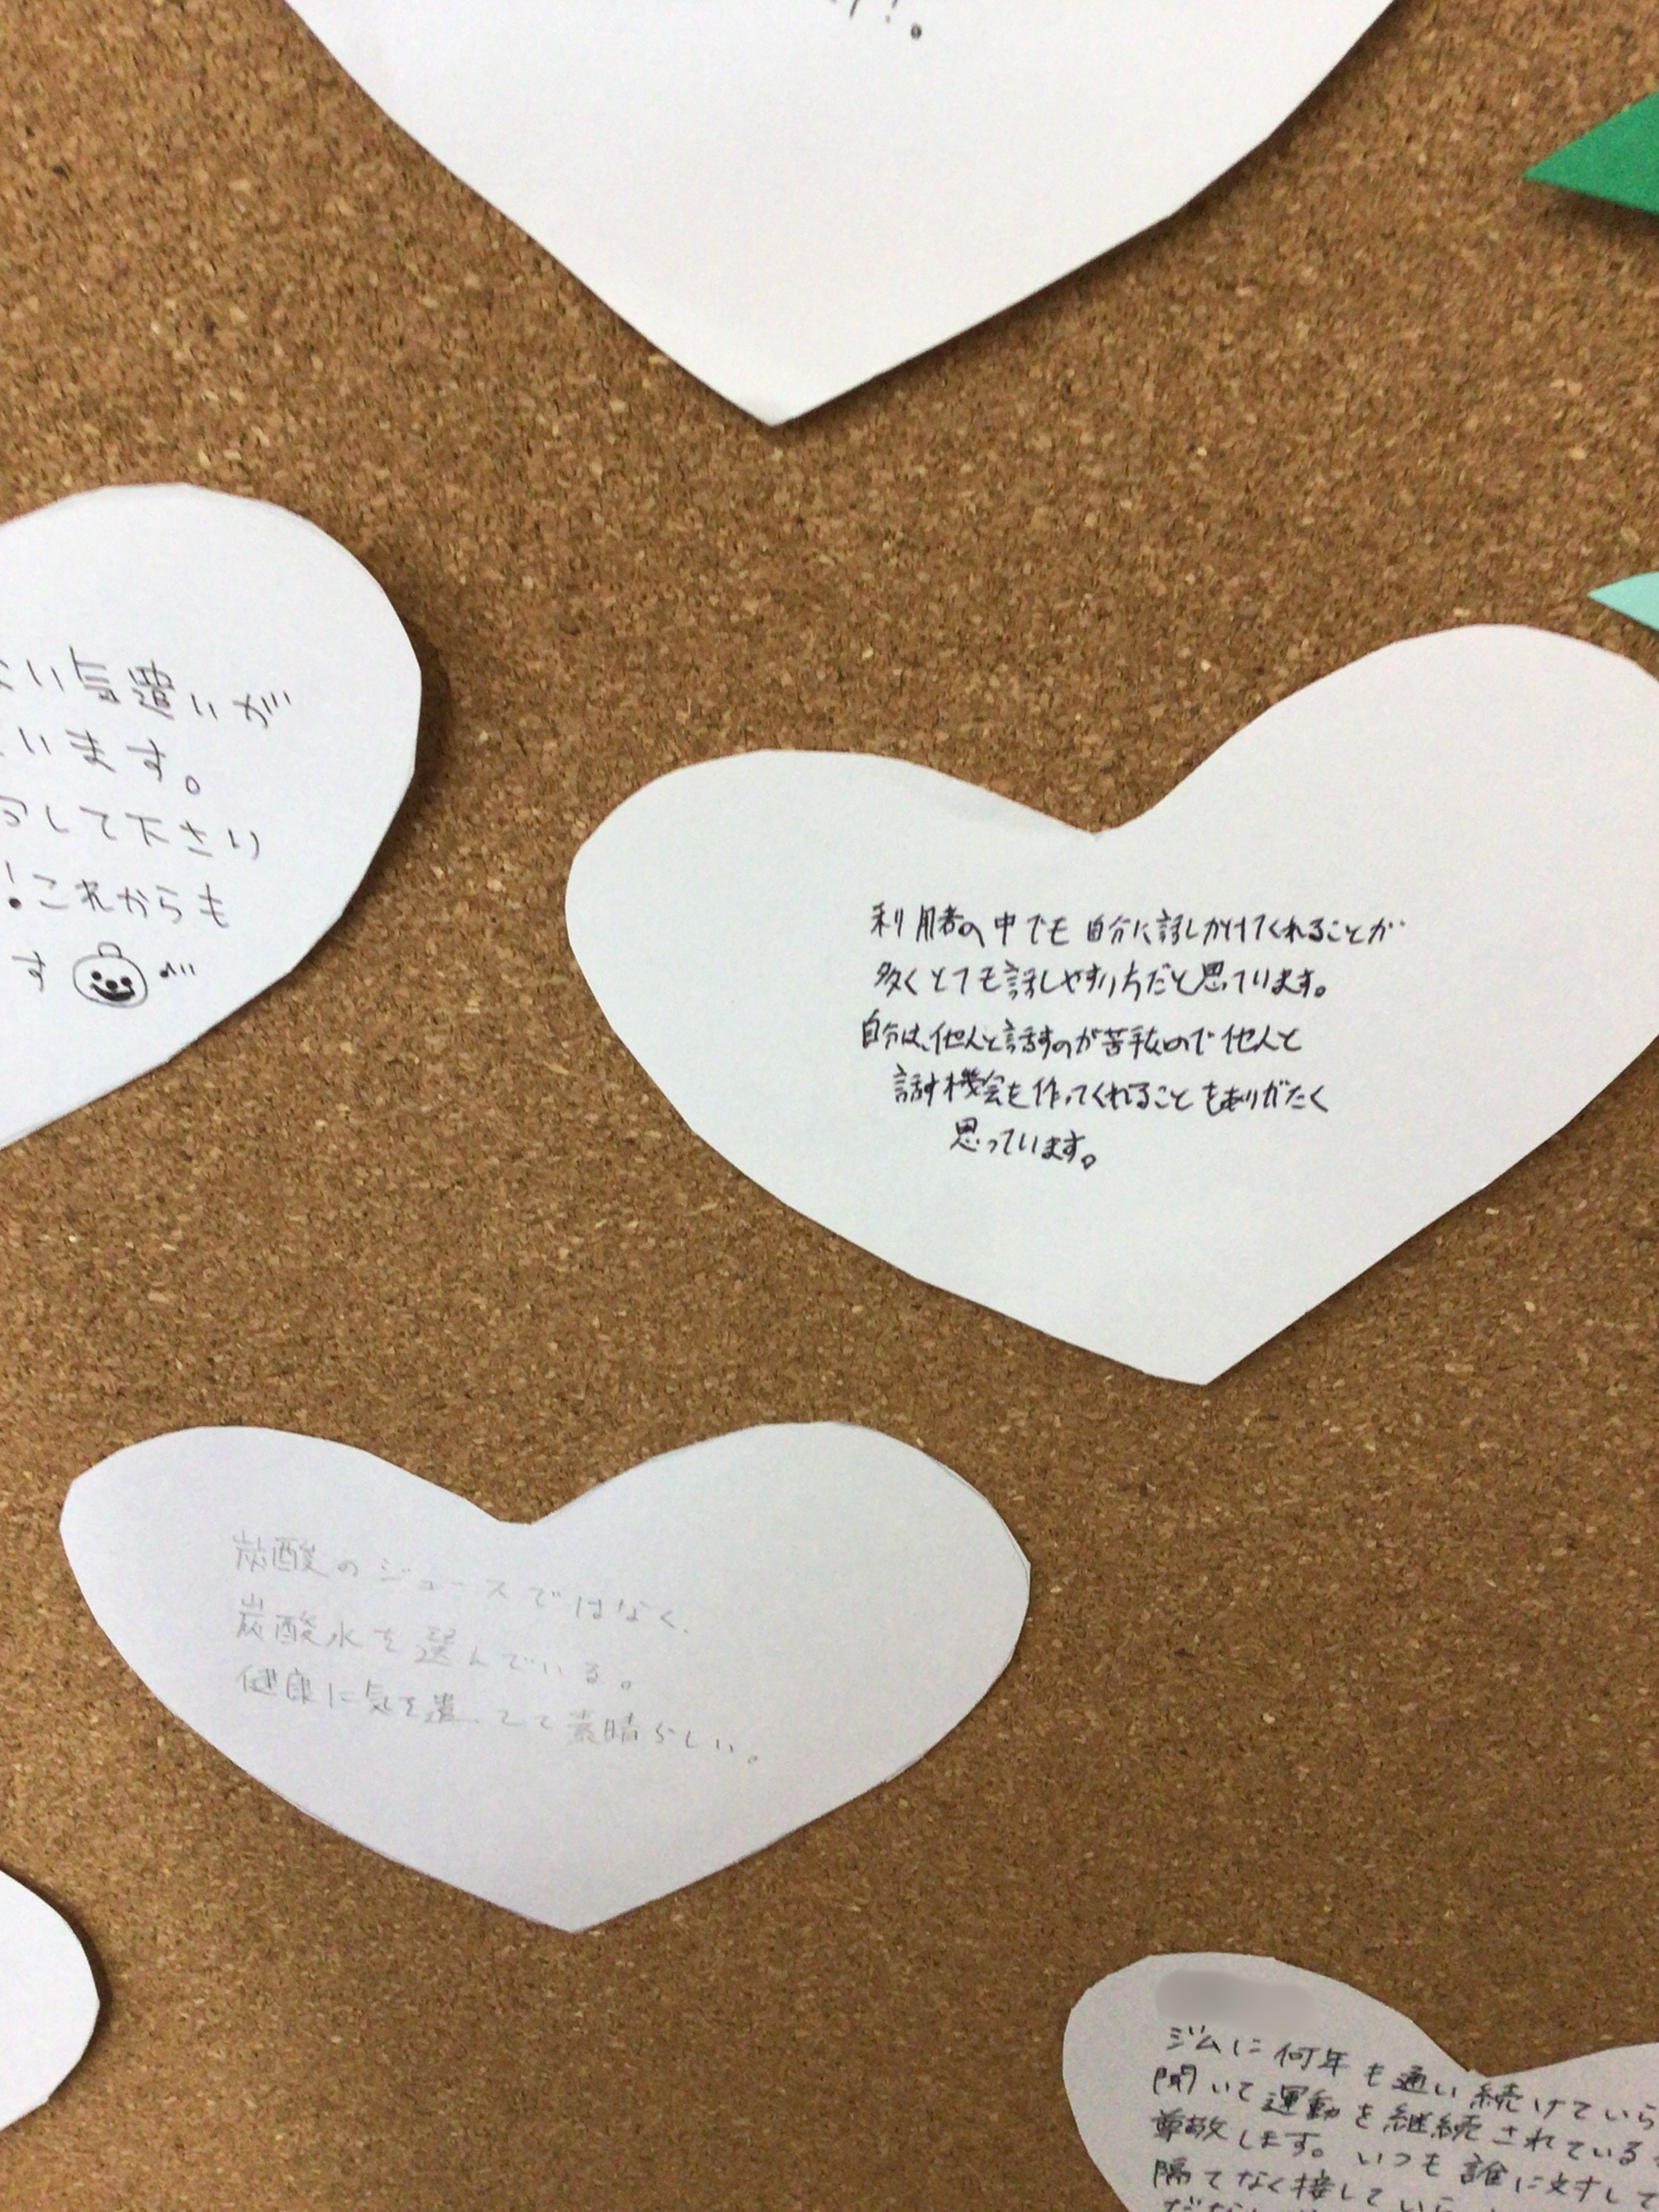 い気遣いが
います。
して下さり
！これからも
す
利用者の中でも自分に話しかけてくれることが
多くとても話しやすい方だと思ています。
自分は、他人と話すのが苦手なので他人と
話す機会を作ってくれることもありがたく
思っています。
炭酸のジュースではなく、
炭酸水を選んでいる。
健康に気を遣ってて素晴らしい。
ジムに何年も通い続けていら
聞いて運動を継続されている
尊敬します。いつも誰に対して
隔てなく接してい